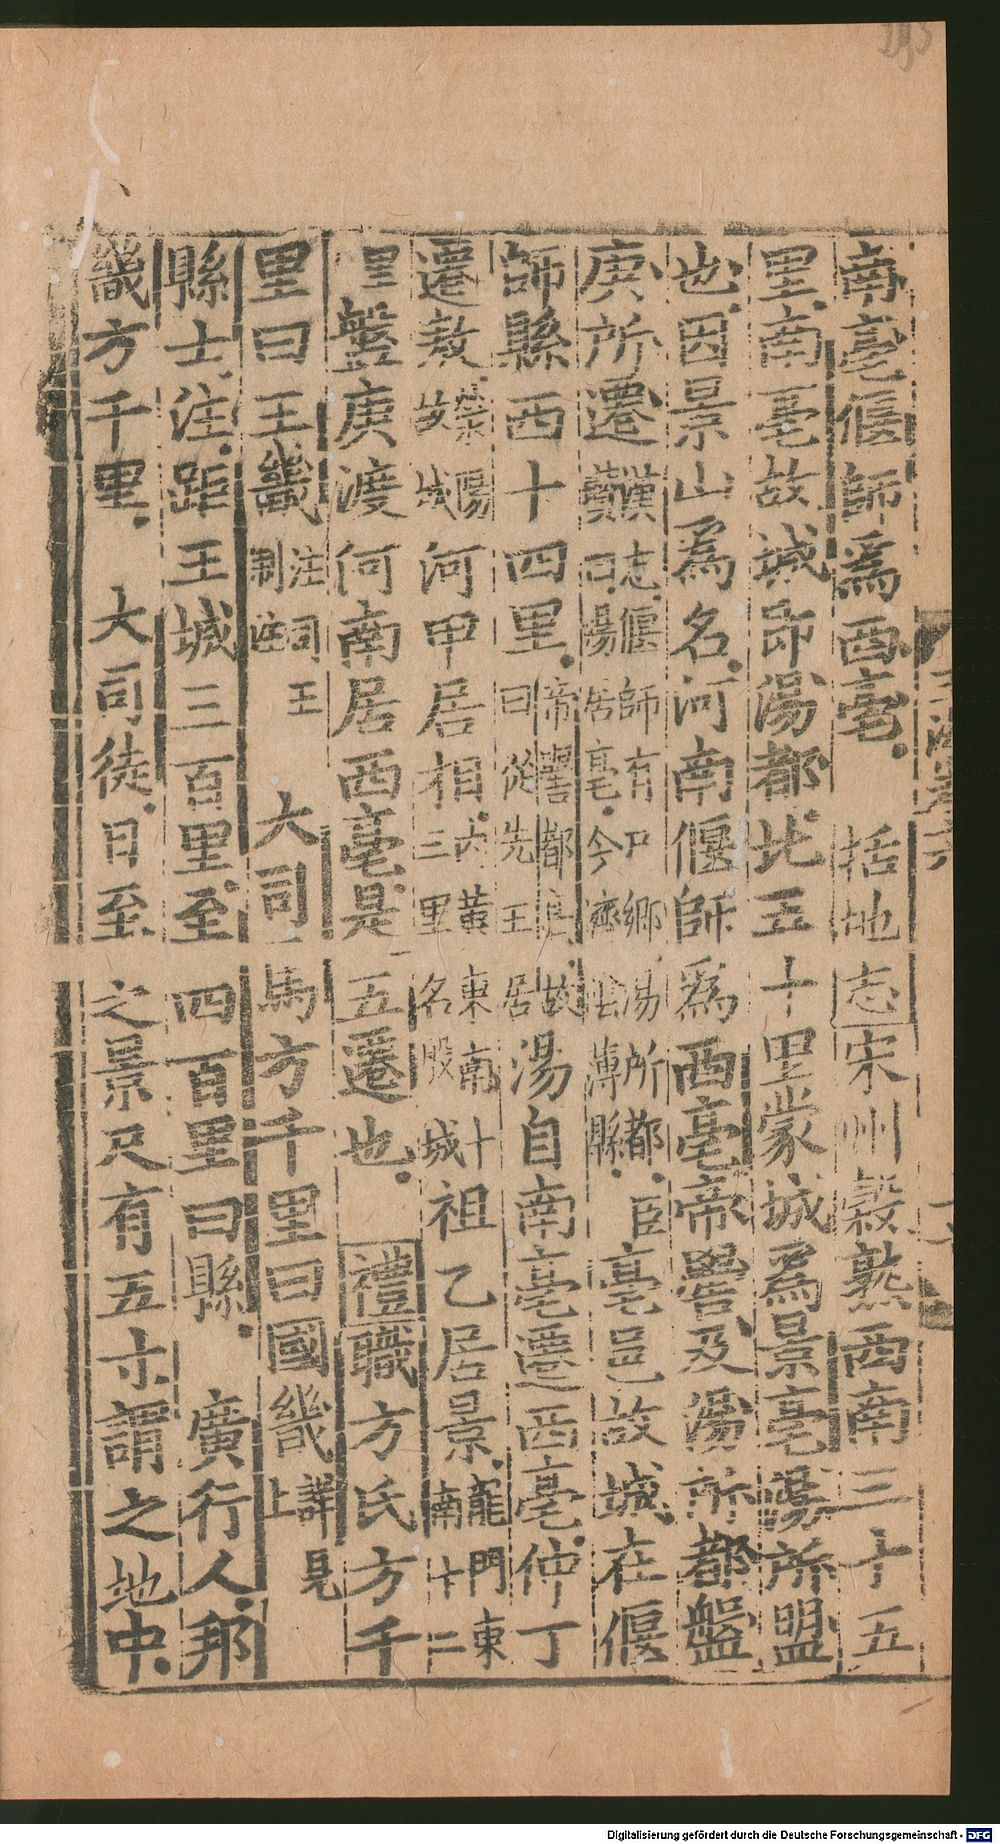 南亳偃師爲西亳括地志宋州穀熟西南三十五
里南亳故城卽湯都北五十里蒙城爲景亳湯所盟
也因景山爲名河南偃師爲西亳帝嚳及湯所都盤
庚所遷漢志偃師有尸鄉湯所都臣瓚曰湯居亳今濟陰薄縣亳邑故城在偃
師縣西十四里帝嚳都亳故曰從先王居湯自南亳遷西亳仲丁
遷敖滎陽故城河甲居相內黃東南十三里名殷城祖乙居景龍門東南十二
里盤庚渡河南居西亳是五遷也禮職方氏方千
里曰王畿注司王制注大司馬方千里曰國畿詳見上
縣士注距王城三百里至四百里曰縣廣行人邦
畿方千里大司徒日至之景尺有五寸謂之地中
Digitalisierung gefördert durch die Deutsche Forschungsgemeinschaft - DFG